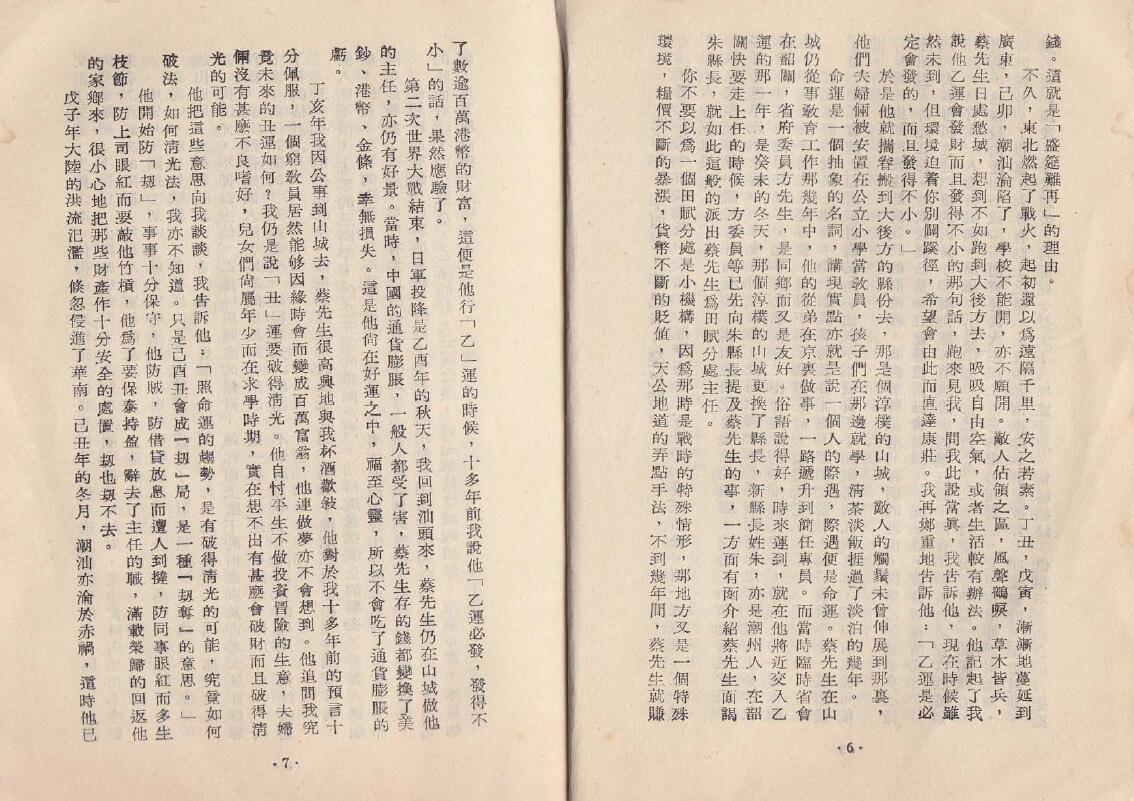 錢。這就是「盛筵難再」的理由。
不久，東北燃起了戰火，起初還以爲遠隔千里，安之若素。丁丑，戊寅，漸漸地蔓延到
廣東，己卯，潮汕淪陷了，學校不能開，亦不願開。敵人佔領之區，風聲鶴唳，草木皆兵，
蔡先生日處愁城，想到不如跑到大後方去，吸吸自由空氣，或者生活較有辦法。他記起了我
說他乙運會發財而且發得不小的那句話，跑來見我，問我此說當眞，我告訴他，現在時候雖
然未到，但環境迫着你別闢蹊徑，希望會由此而直達康莊。我再鄭重地告訴他：「乙運是必
定會發的，而且發得不小。」
於是他就攜眷搬到大後方的縣份去，那是個淳樸的山城，敵人的觸鬚未曾伸展到那裏，
他們夫婦倆被安置在公立小學當敎員，孩子們在那邊就學，淸茶淡飯捱過了淡泊的幾年。
命運是一個抽象的名詞，講現實點亦就是說一個人的際遇，際遇便是命運。蔡先生在山
城仍從事敎育工作那幾年中，他的從弟在京裏做事，一路遞升到簡任專員。而當時臨時省會
在韶關，省府委員方先生，是同鄉而又是友好。俗語說得好，時來運到，就在他將近交入乙
運的那一年，是癸未的冬天，那個淳樸的山城更換了縣長，新縣長姓朱，亦是潮州人，在韶
關快要走上任的時候，方委員等已先向朱縣長提及蔡先生的事，一方面有函介紹蔡先生面謁
朱縣長，就如此這般的派出蔡先生爲田賦分處主任。
你不要以爲一個田賦分處是小機構，因爲那時是戰時的特殊情形，那地方又是一個特殊
環境，糧價不斷的暴漲，貨幣不斷的貶値，天公地道的弄點手法，不到幾年間，蔡先生就賺
·6·
了數逾百萬港幣的財富，這便是他行「乙」運的時候，十多年前我說他「乙運必發，發得不
小」的話，果然應驗了。
第二次世界大戰結束，日軍投降是乙酉年的秋天，我回到汕頭來，蔡先生仍在山城做他
的主任，亦仍有好景。當時，中國的通貨膨脹，一般人都受了害，蔡先生存的錢都變換了美
鈔、港幣、金條，幸無損失。這是他尙在好運之中，福至心靈，所以不會吃了通貨膨脹的
虧。
丁亥年我因公事到山城去，蔡先生很高興地與我杯酒歡敍，他對於我十多年前的預言十
分佩服，一個窮敎員居然能够因緣時會而變成百萬富翁，他連做夢亦不會想到。他追問我究
竟未來的丑運如何？我仍是說「丑」運要破得淸光。他自忖平生不做投資冒險的生意，夫婦
倆沒有甚麽不良嗜好，兒女們尙屬年少而在求學時期，實在想不出有甚麽會破財而且破得淸
光的可能。
他把這些意思向我談談，我告訴他：「照命運的趨勢，是有破得淸光的可能，究竟如何
破法，如何淸光法，我亦不知道。只是己酉丑會成『刼』局，是一種『刼奪』的意思。」
他開始防「刼」，事事十分保守，他防賊，防借貸放息而遭人到撻，防同事眼紅而多生
枝節，防上司眼紅而要敲他竹槓，他爲了要保泰持盈，辭去了主任的職，滿載榮歸的回返他
的家鄉來，很小心地把那些財產作十分安全的處置，刼也刼不去。
戊子年大陸的洪流汜濫，倏忽侵進了華南。己丑年的冬月，潮汕亦淪於赤禍，這時他已
·7·